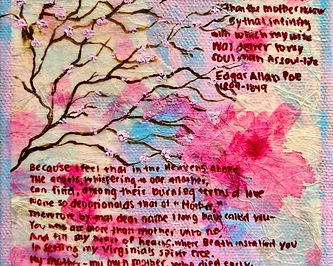 than the mother I knew
By that infinity
with which my wife
was dearer to my
soul than its soul-life
Edgar Allan Poe
1809-1849
Because I feel that in the Heavens above
The angels, whispering to one another,
Can find, among their burning terms of love
None so devotional as that of "Mother,"
Therefore by that dear name I long have called you—
You who are more than mother unto me
And fill my heart of hearts, where Death installed you
In setting my Virginia's spirit free.
My mother - my own mother, who died early